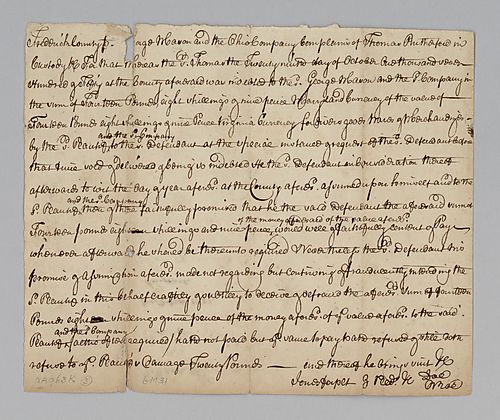 Frederick County Sc. George Mason and the Ohio Company complains of Thomas Rutherford in
Custody &c. for that whereas the sd. Thomas the Twenty day of October One thousand seven
Hundred & fifty at the County aforesaid was indebted to the sd. George Mason and the sd. Company in
the sum of Fourteen Pounds eight shillings & nine pence Maryland Currency of the value of
Fourteen Pounds eight shillings & nine Pence Virginia Currency for divers goods wares & Merchandizes
and the sd. Company
by the sd. Plaintiff to the sd. Defendant at the special instance & request of the sd. Defendant before
that time sold & Delivered & being so indebted the sd. Defendant in consideration thereof
afterwards to wit the day & year aforesd. at the County aforesd. assumed upon himself and to the
and the sd. Company
sd. Plaintiff then & there faithfully promised that he the said Defendant the aforesaid sum of
of the money aforesaid of the value aforesd.
Fourteen pounds eight shillings and nine pence, would well & faithfully content & Pay
whenever afterward he should be thereunto required Nevertheless the sd. Defendant his
promise & assumption aforesd. made not regarding but contriving & fraudulently intending the
sd. Plaintiff in this behalf craftily & subtilly to deceive & defraud the aforesd. sum of fourteen
Pounds eight shillings & nine pence of the money aforesd. of the value aforesd. to the said
and the sd. Company
Plaintiff altho often required hath not paid but the same to pay hath refused & still doth
refuse to the Plaintiff's Damage Twenty Pounds — and thereof he brings suit &c
Jones for plt. & Pledges &c Doe
Roe
NA963K 2)
6M31